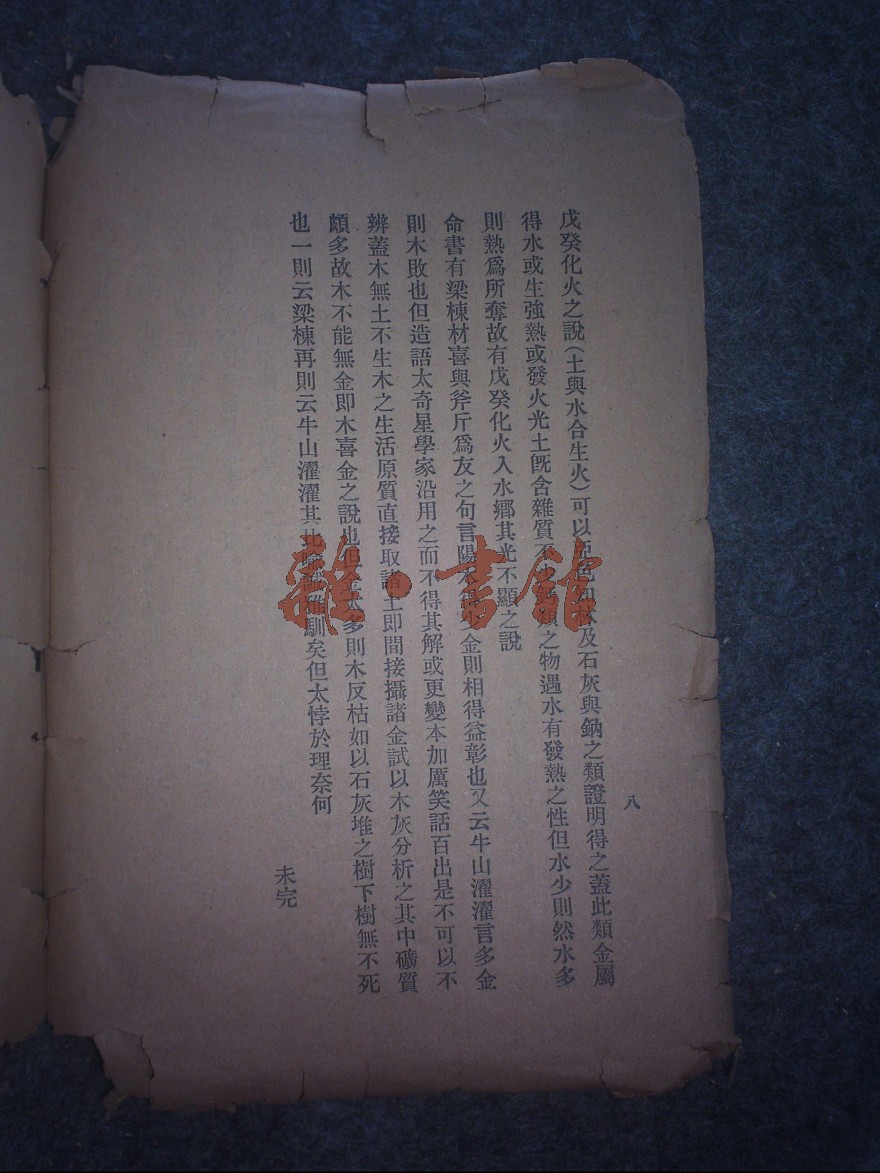 八
戊癸化火之說(土與水合生火)可以及石灰與鈉之類證明得之蓋此類金屬
得水或生強熱或發火光土既含雜質不之物遇水有發熱之性但水少則然水多
則熱爲所奪故有戊癸化火入水鄉其光不顯之說
命書有梁棟材喜與斧斤爲友之句言陽金則相得益彰也又云牛山濯濯言多金
則木敗也但造語太奇星學家沿用之而不得其解或更變本加厲笑話百出是不可以不
辨蓋木無土不生木之生活原質直接取諸土即間接攝諸金試以木灰分析之其中礦質
頗多故木不能無金即木喜金之說也但太多則木反枯如以石灰堆之樹下樹無不死
也一則云梁棟再則云牛山濯濯其馴矣但太悖於理奈何
未完
雜·書館